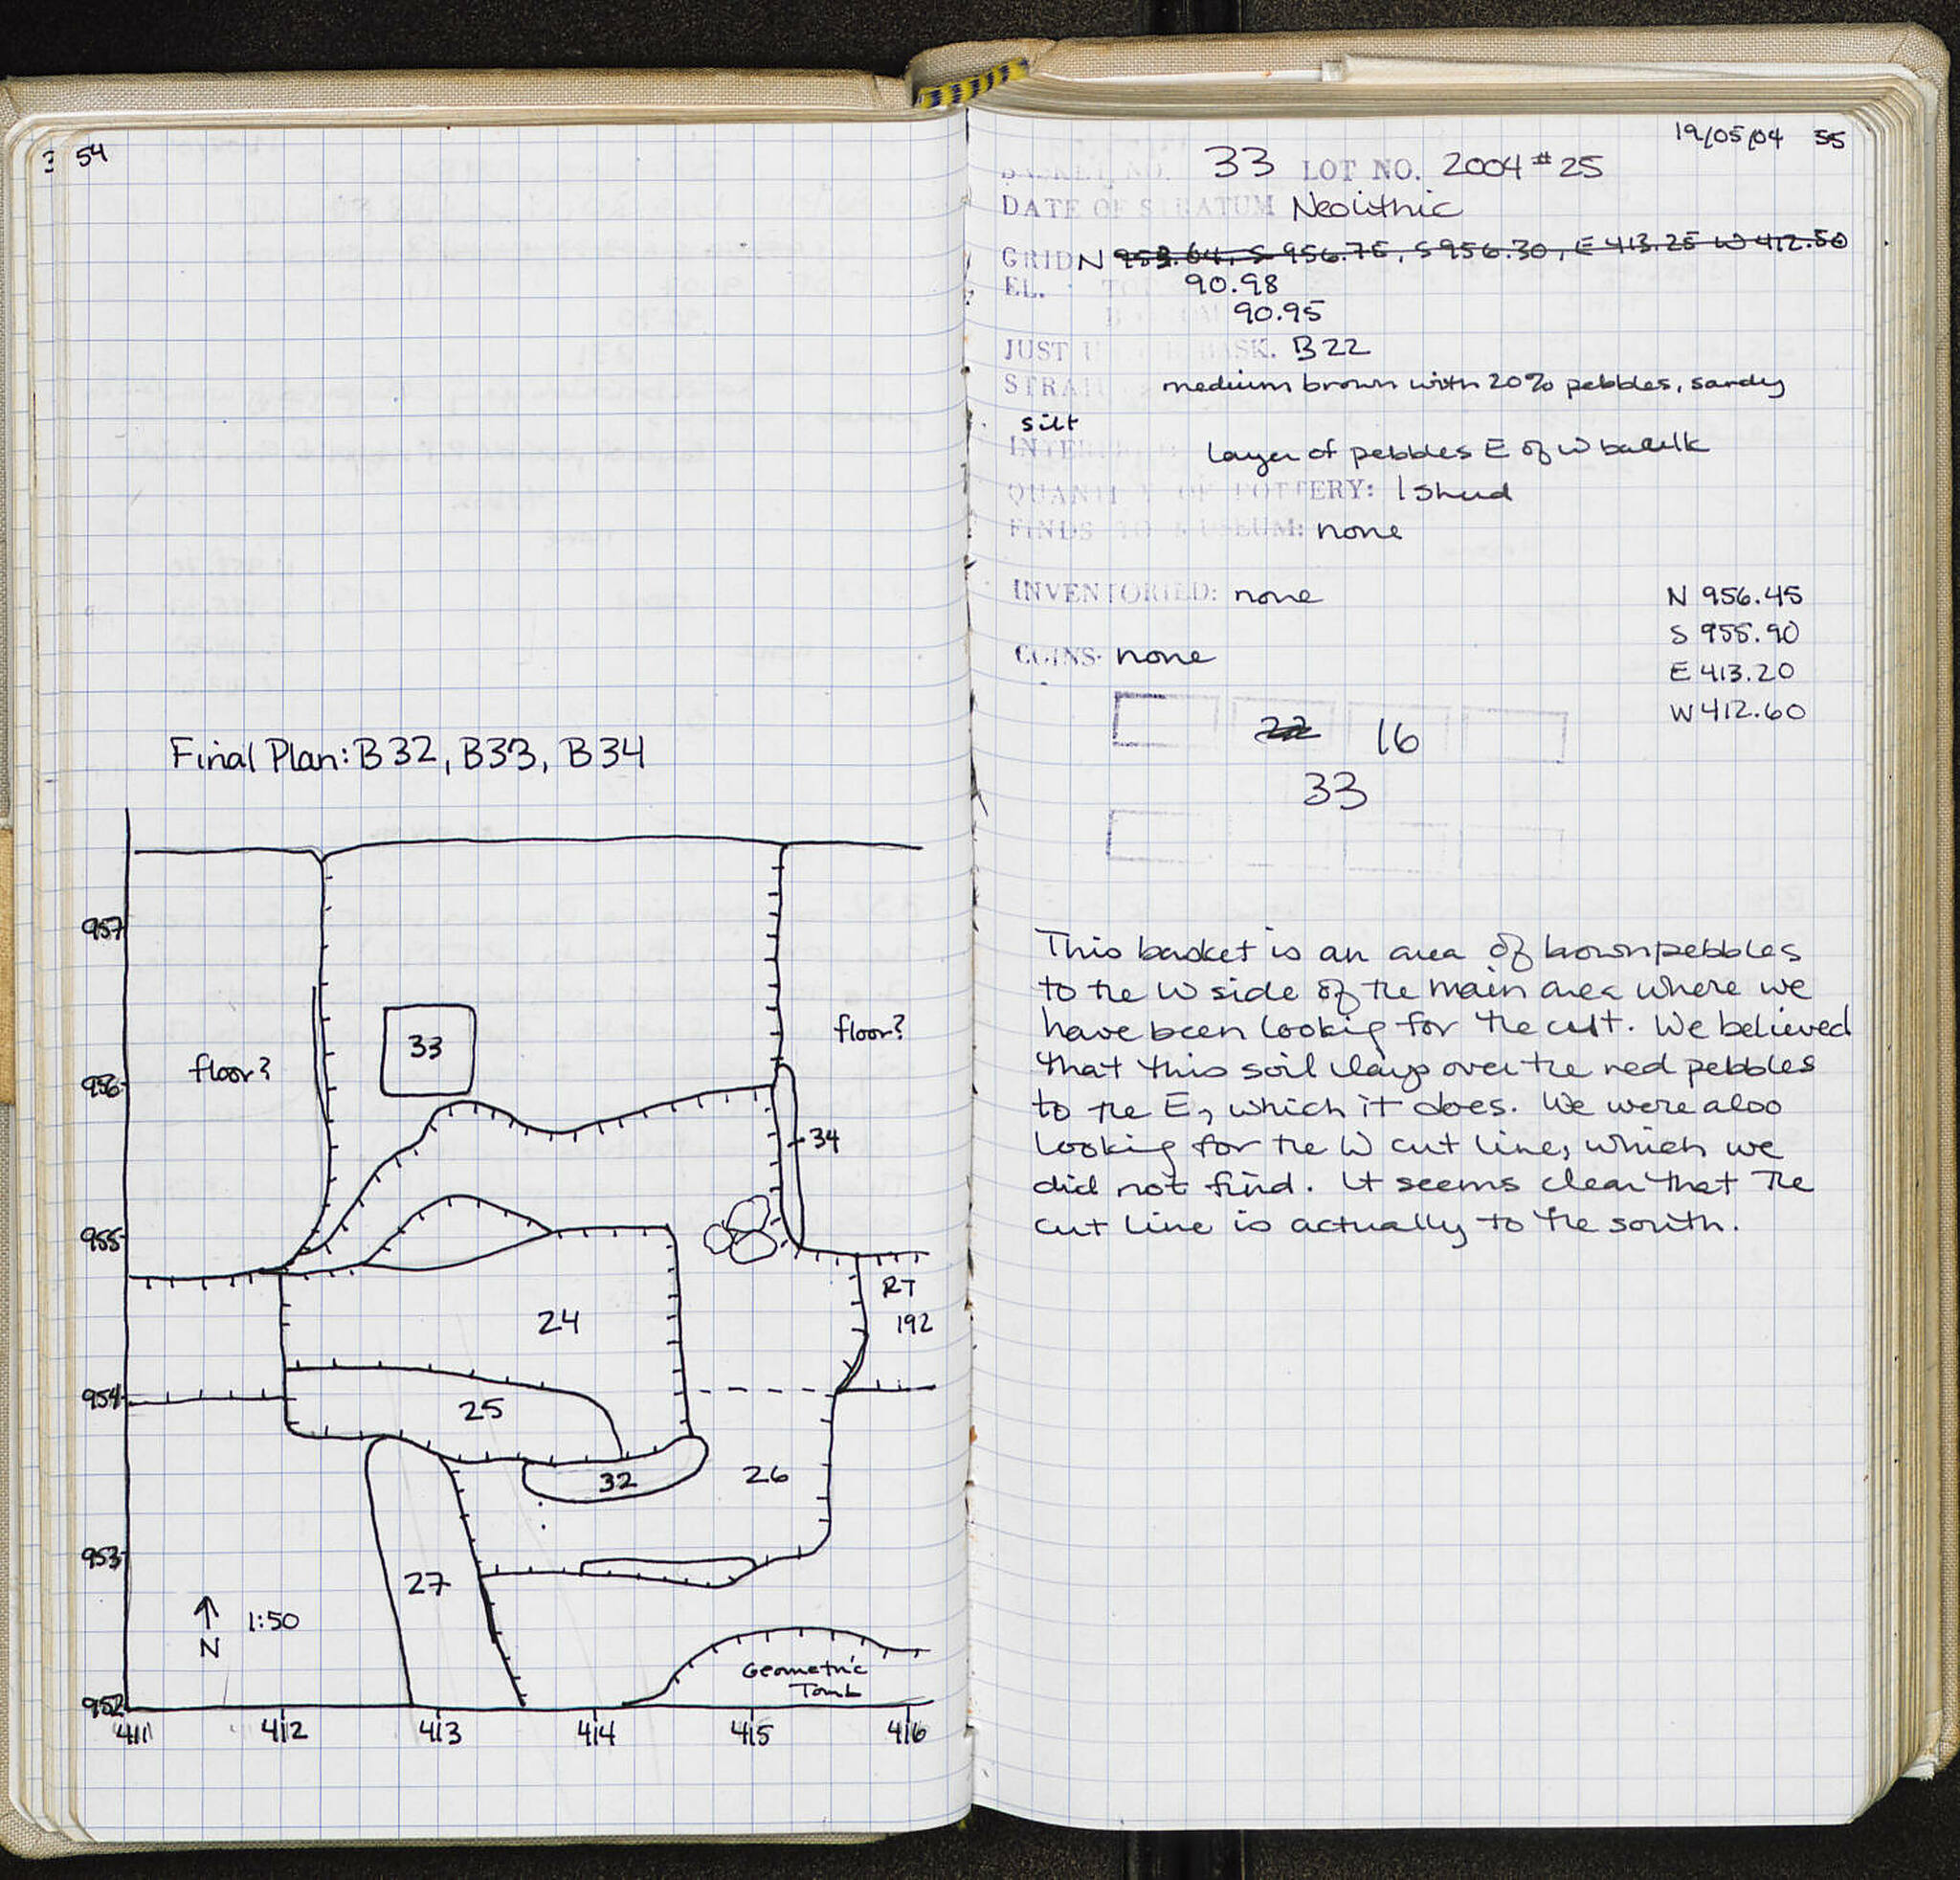 54
Final Plan: B32, B33, B34
957
956
955
954
953
952
411
412
413
414
415
416
floor?
33
floor?
34
24
RT
192
25
32
26
27
N
1:50
Geometric
Tomb
19/05/04 55
33 LOT NO. 2004 #25
DATE OF STRATUM Neolithic
GRID N 953.64, S 956.75, S 956.30, E 413.25 W 412.50
EL. 90.98
90.95
JUST UNDER BASK. B22
medium brown with 20% pebbles, sandy
silt
Layer of pebbles E of W baulk
QUANTITY OF POTTERY: 1 sherd
FINDS TO MUSEUM: none
INVENTORIED: none
COINS: none
N 956.45
S 955.90
E 413.20
W 412.60
22 16
33
This basket is an area of brown pebbles
to the W side of the main area where we
have been looking for the cut. We believed
that this soil lays over the red pebbles
to the E, which it does. We were also
looking for the W cut line, which we
did not find. It seems clear that the
cut line is actually to the south.